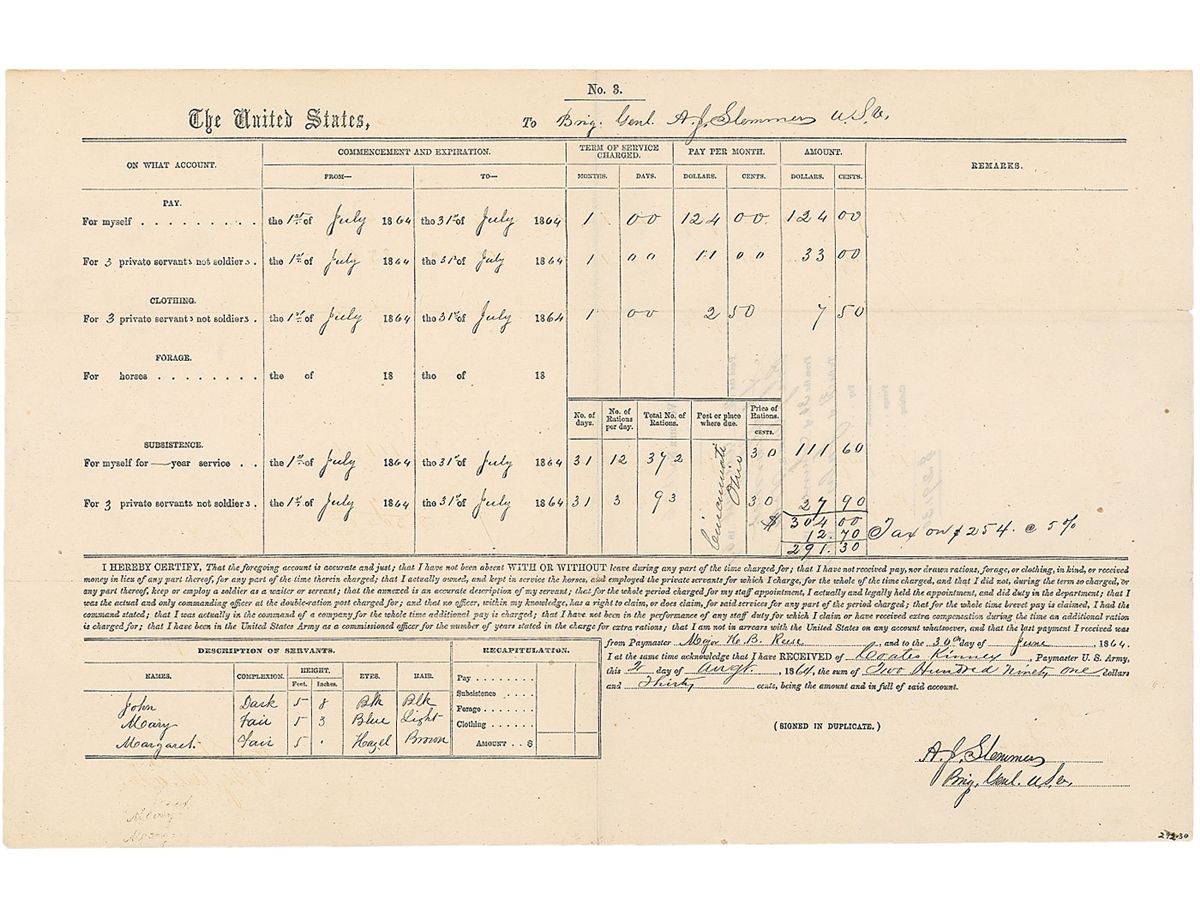 No. 3.
The United States, To Brig. Genl. A. J. Slemmer U.S.V.
ON WHAT ACCOUNT. COMMENCEMENT AND EXPIRATION. TERM OF SERVICE CHARGED. PAY PER MONTH. AMOUNT. REMARKS.
FROM— TO— MONTHS. DAYS. DOLLARS. CENTS. DOLLARS. CENTS.
PAY.
For myself . . . . . . . . . . the 1st of July 1864 the 31st of July 1864 1 00 124 00 124 00
For 3 private servants not soldiers . the 1st of July 1864 the 31st of July 1864 1 00 11 00 33 00
CLOTHING.
For 3 private servants not soldiers . the 1st of July 1864 the 31st of July 1864 1 00 2 50 7 50
FORAGE.
For horses . . . . . . . . the of 18 the of 18
No. of days. No. of Rations per day. Total No. of Rations. Post or place where due. Price of Rations.
CENTS.
SUBSISTENCE.
For myself for — year service . . the 1st of July 1864 the 31st of July 1864 31 12 372 Cincinnati Ohio 30 111 60
For 3 private servants not soldiers . the 1st of July 1864 the 31st of July 1864 31 3 93 30 27 90
$ 304 00
12.70 Tax on $254. @ 5%
291.30
I HEREBY CERTIFY, That the foregoing account is accurate and just; that I have not been absent WITH OR WITHOUT leave during any part of the time charged for; that I have not received pay, nor drawn rations, forage, or clothing, in kind, or received
money in lieu of any part thereof, for any part of the time therein charged; that I actually owned, and kept in service the horses, and employed the private servants for which I charge, for the whole of the time charged, and that I did not, during the term so charged, or
any part thereof, keep or employ a soldier as a waiter or servant; that the annexed is an accurate description of my servant; that for the whole period charged for my staff appointment, I actually and legally held the appointment, and did duty in the department; that I
was the actual and only commanding officer at the double-ration post charged for; and that no officer, within my knowledge, has a right to claim, or does claim, for said services for any part of the period charged; that for the whole time brevet pay is claimed, I had the
command stated; that I was actually in the command of a company for the whole time additional pay is charged; that I have not been in the performance of any staff duty for which I claim or have received extra compensation during the time an additional ration
is charged for; that I have been in the United States Army as a commissioned officer for the number of years stated in the charge for extra rations; that I am not in arrears with the United States on any account whatsoever, and that the last payment I received was
from Paymaster Major H. B. Reese, and to the 30th day of June, 1864.
I at the same time acknowledge that I have RECEIVED of Coates Kinney, Paymaster U. S. Army,
this 2 day of Augt., 1864, the sum of Two Hundred Ninety one dollars
and Thirty cents, being the amount and in full of said account.
(SIGNED IN DUPLICATE.)
A. J. Slemmer
Brig. Genl. U.S.V.
DESCRIPTION OF SERVANTS.
NAMES. COMPLEXION. HEIGHT. EYES. HAIR.
Feet. Inches.
John Dark 5 8 Blk Blk
Mary Fair 5 3 Blue Light
Margaret. Fair 5 " Hazel Brown
RECAPITULATION.
Pay . . . . . . . .
Subsistence . . . .
Forage . . . . . . .
Clothing . . . . . .
AMOUNT . . $
292.30